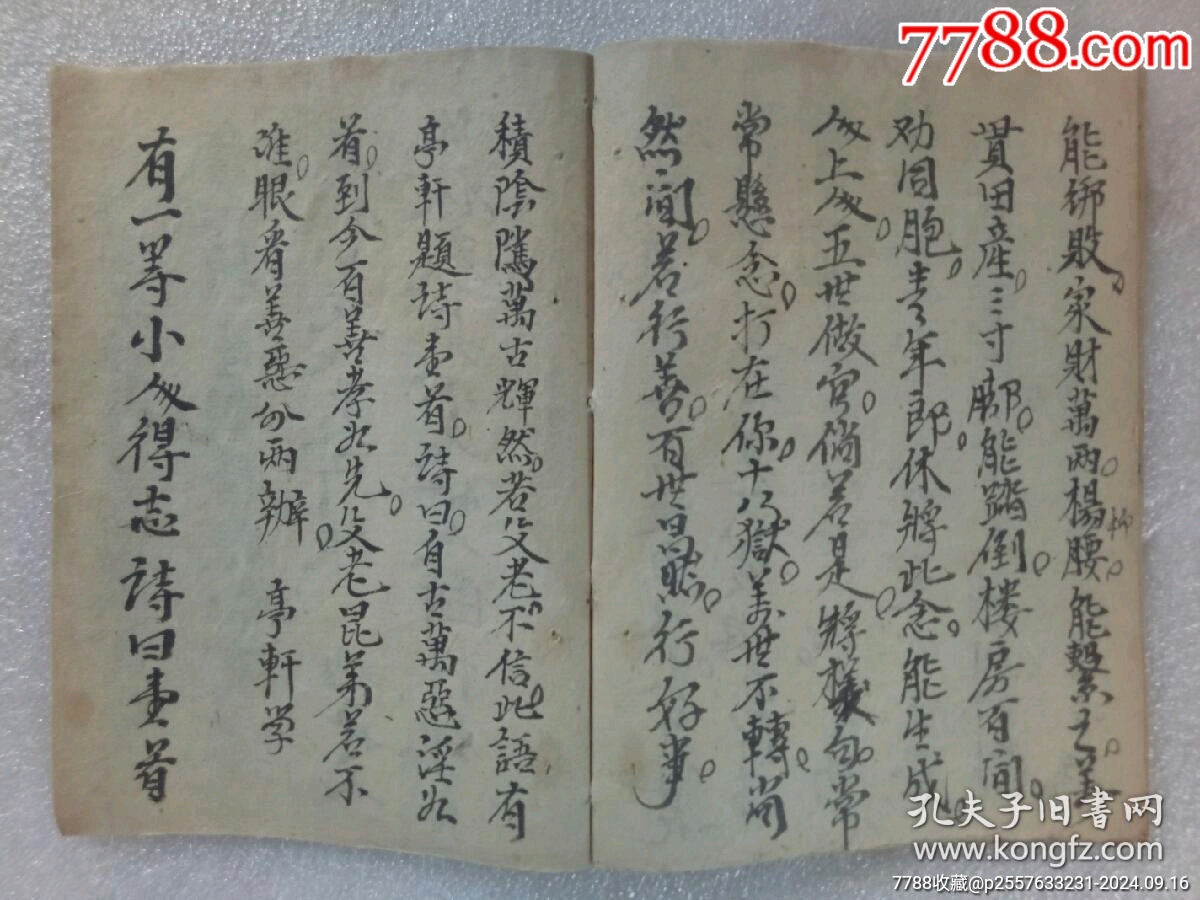 能綁敗家財萬兩楊柳腰能繫千
貫田產三寸腳能踏倒樓房百间
劝同胞青年郎休將此念能生成
人上人五世做官倘若是將樣勾常
常懸念打在你十八獄萬世不轉尚
然间若行善百世昌盛行好事
積陰隲萬古輝然若父老不信此語有
亭軒題詩壹首詩曰自古萬惡淫为
首到今百善孝为先父老昆弟若不
准眼看善惡分两辦 亭軒学
有一等小人得志詩曰壹首
7788.com
孔夫子旧書网
www.kongfz.com
7788收藏@p2557633231-2024.09.16